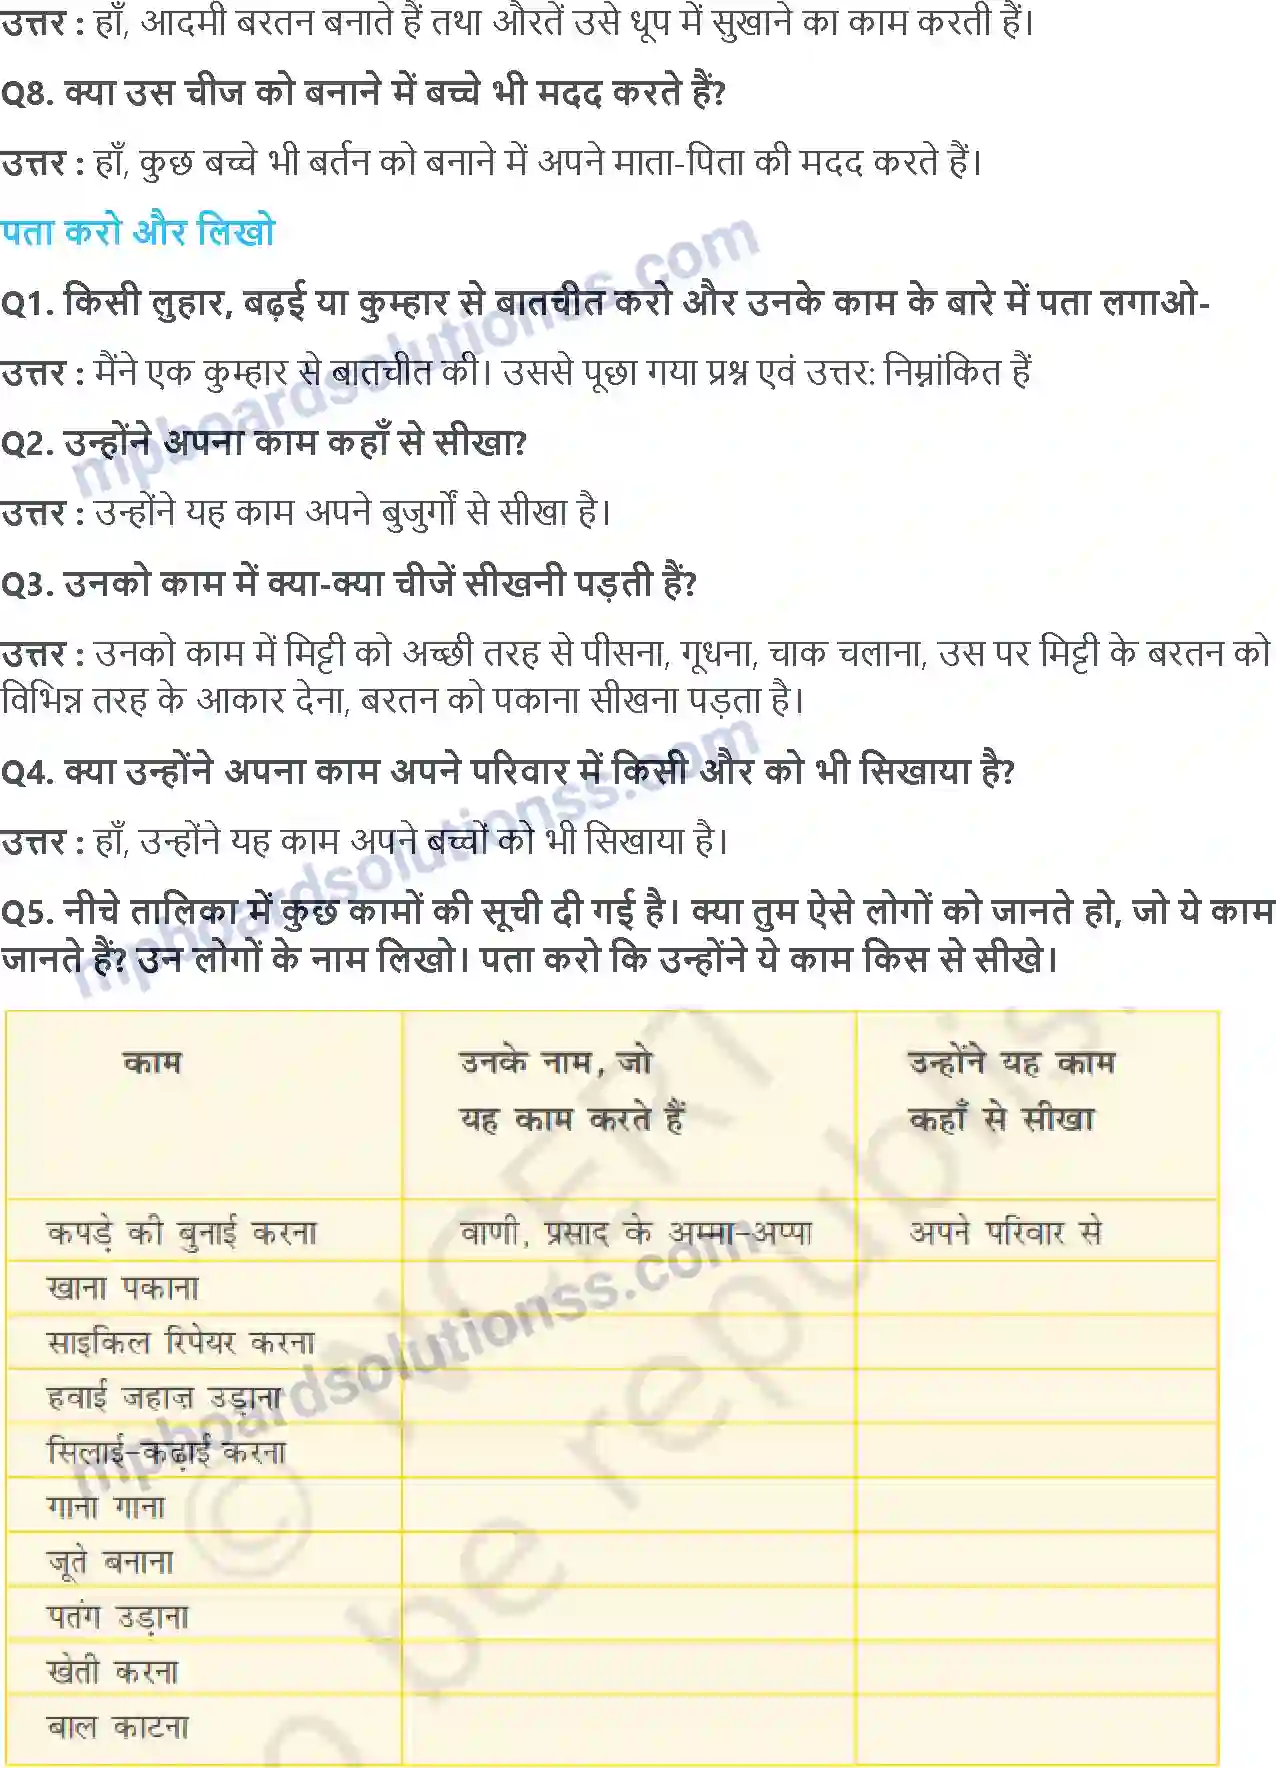 उत्तर : हाँ, आदमी बरतन बनाते हैं तथा औरतें उसे धूप में सुखाने का काम करती हैं।
Q8. क्या उस चीज को बनाने में बच्चे भी मदद करते हैं?
उत्तर : हाँ, कुछ बच्चे भी बर्तन को बनाने में अपने माता-पिता की मदद करते हैं।
पता करो और लिखो
Q1. किसी लुहार, बढ़ई या कुम्हार से बातचीत करो और उनके काम के बारे में पता लगाओ-
उत्तर : मैंने एक कुम्हार से बातचीत की। उससे पूछा गया प्रश्न एवं उत्तर: निम्नांकित हैं
Q2. उन्होंने अपना काम कहाँ से सीखा?
उत्तर : उन्होंने यह काम अपने बुजुर्गों से सीखा है।
Q3. उनको काम में क्या-क्या चीजें सीखनी पड़ती हैं?
उत्तर : उनको काम में मिट्टी को अच्छी तरह से पीसना, गूधना, चाक चलाना, उस पर मिट्टी के बरतन को
विभिन्न तरह के आकार देना, बरतन को पकाना सीखना पड़ता है।
Q4. क्या उन्होंने अपना काम अपने परिवार में किसी और को भी सिखाया है?
उत्तर : हाँ, उन्होंने यह काम अपने बच्चों को भी सिखाया है।
Q5. नीचे तालिका में कुछ कामों की सूची दी गई है। क्या तुम ऐसे लोगों को जानते हो, जो ये काम
जानते हैं? उन लोगों के नाम लिखो। पता करो कि उन्होंने ये काम किस से सीखे।
काम उनके नाम, जो उन्होंने यह काम
यह काम करते हैं कहाँ से सीखा
कपड़े की बुनाई करना वाणी, प्रसाद के अम्मा-अप्पा अपने परिवार से
खाना पकाना
साइकिल रिपेयर करना
हवाई जहाज़ उड़ाना
सिलाई-कढ़ाई करना
गाना गाना
जूते बनाना
पतंग उड़ाना
खेती करना
बाल काटना
mpboardsolutionss.com
mpboardsolutionss.com
mpboardsolutionss.com
© NCERT
be republis